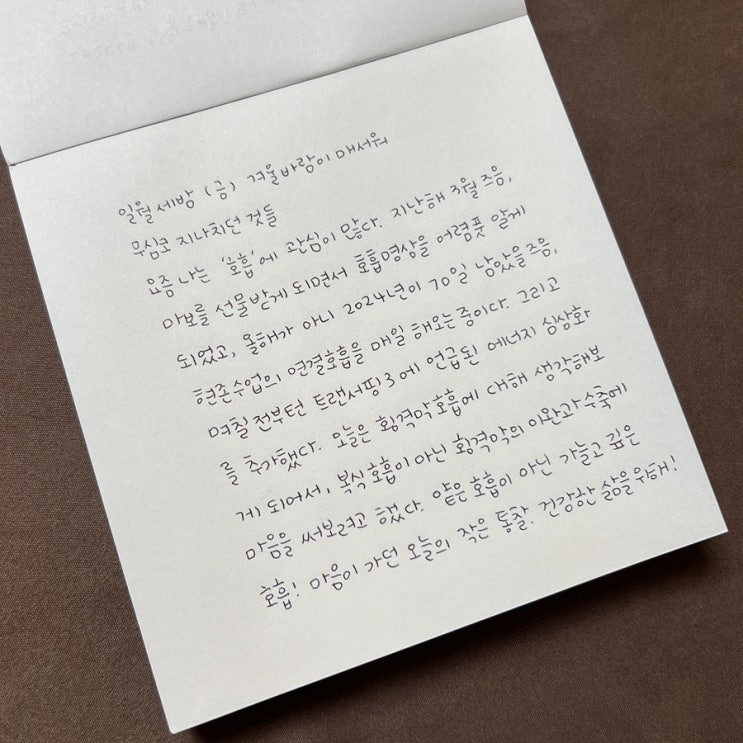 일월 세밤 (금) 겨울바람이 매서워
무심코 지나치던 것들
요즘 나는 '호흡'에 관심이 많다. 지난해 3월 즈음,
마보를 선물받게 되면서 호흡명상을 어렴풋 알게
되었고, 올해가 아니 2024년이 70일 남았을 즈음,
현존수업의 연결호흡을 매일 해오는 중이다. 그리고
며칠 전부턴 트랜서핑 3에 언급된 에너지 심상화
를 추가했다. 오늘은 횡격막호흡에 대해 생각해보
게 되어서, 복식호흡이 아닌 횡격막의 이완과 수축에
마음을 써보려고 했다. 얕은 호흡이 아닌 가늘고 깊은
호흡! 마음이 가던 오늘의 작은 통찰. 건강한 삶을 위해!